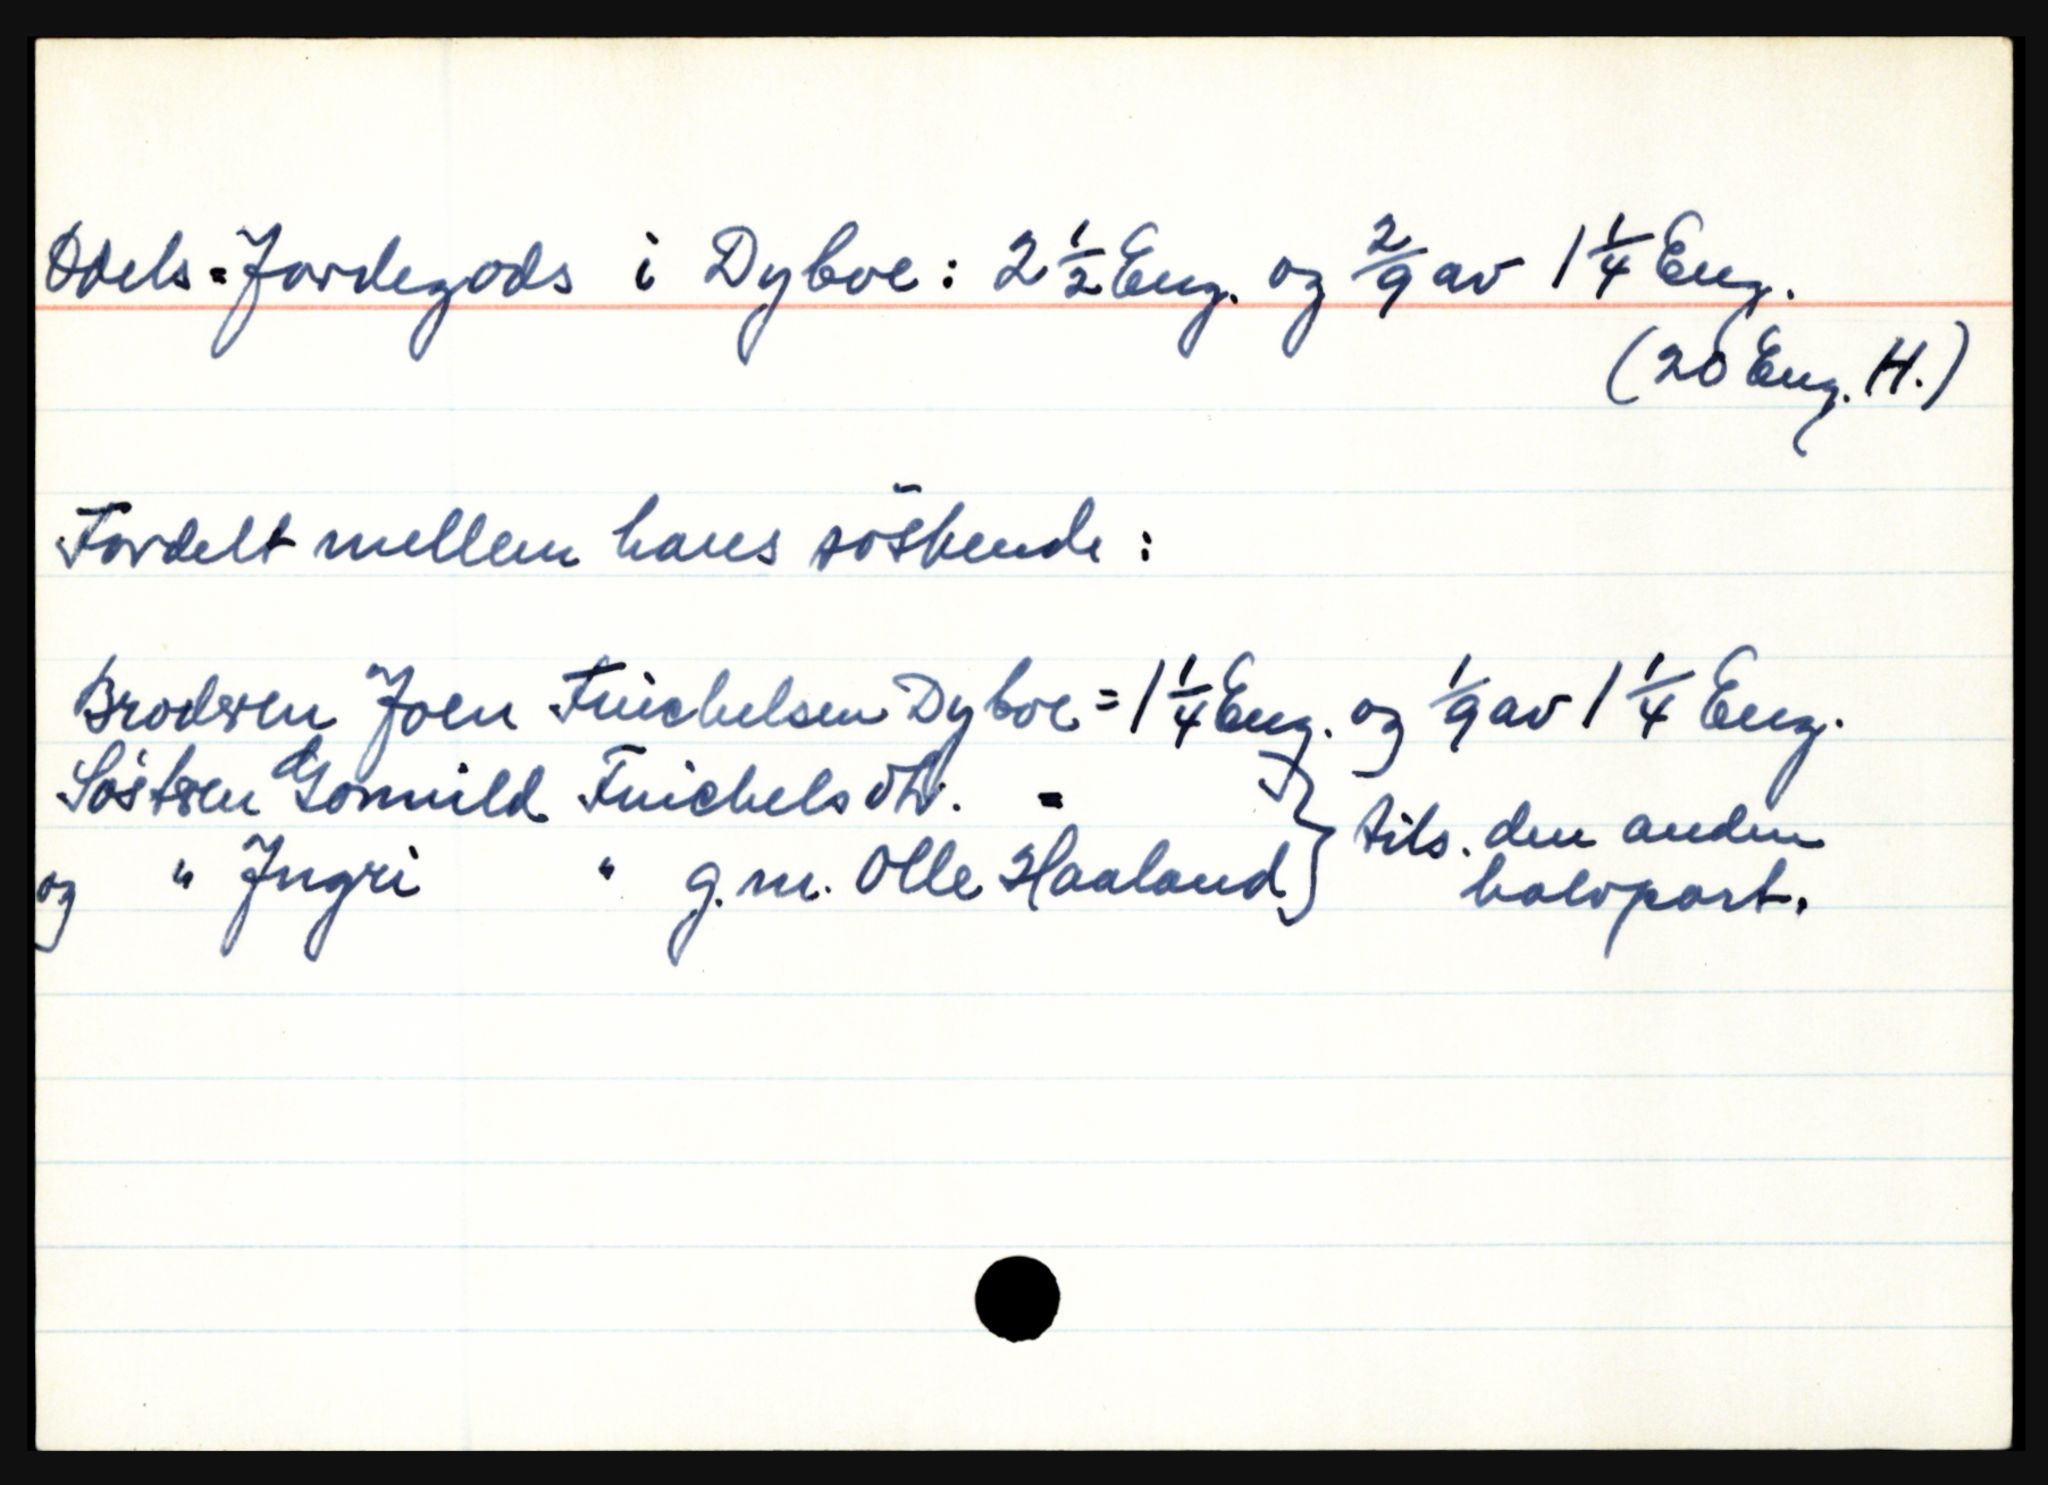 Odels=Jordegods i Dyboe: 2 1/2 Eng. og 2/9 av 1 1/4 Eng.
(20 Eng. H.)
Fordelt mellem hans söskende:
Broderen Joen Finichelsen Dyboe = 1 1/4 Eng. og 1/9 av 1 1/4 Eng.
Söstren Gomuld Finichelsdtr. =
og " Jngri " g.m. Olle Haaland } tils. den anden
halvpart.